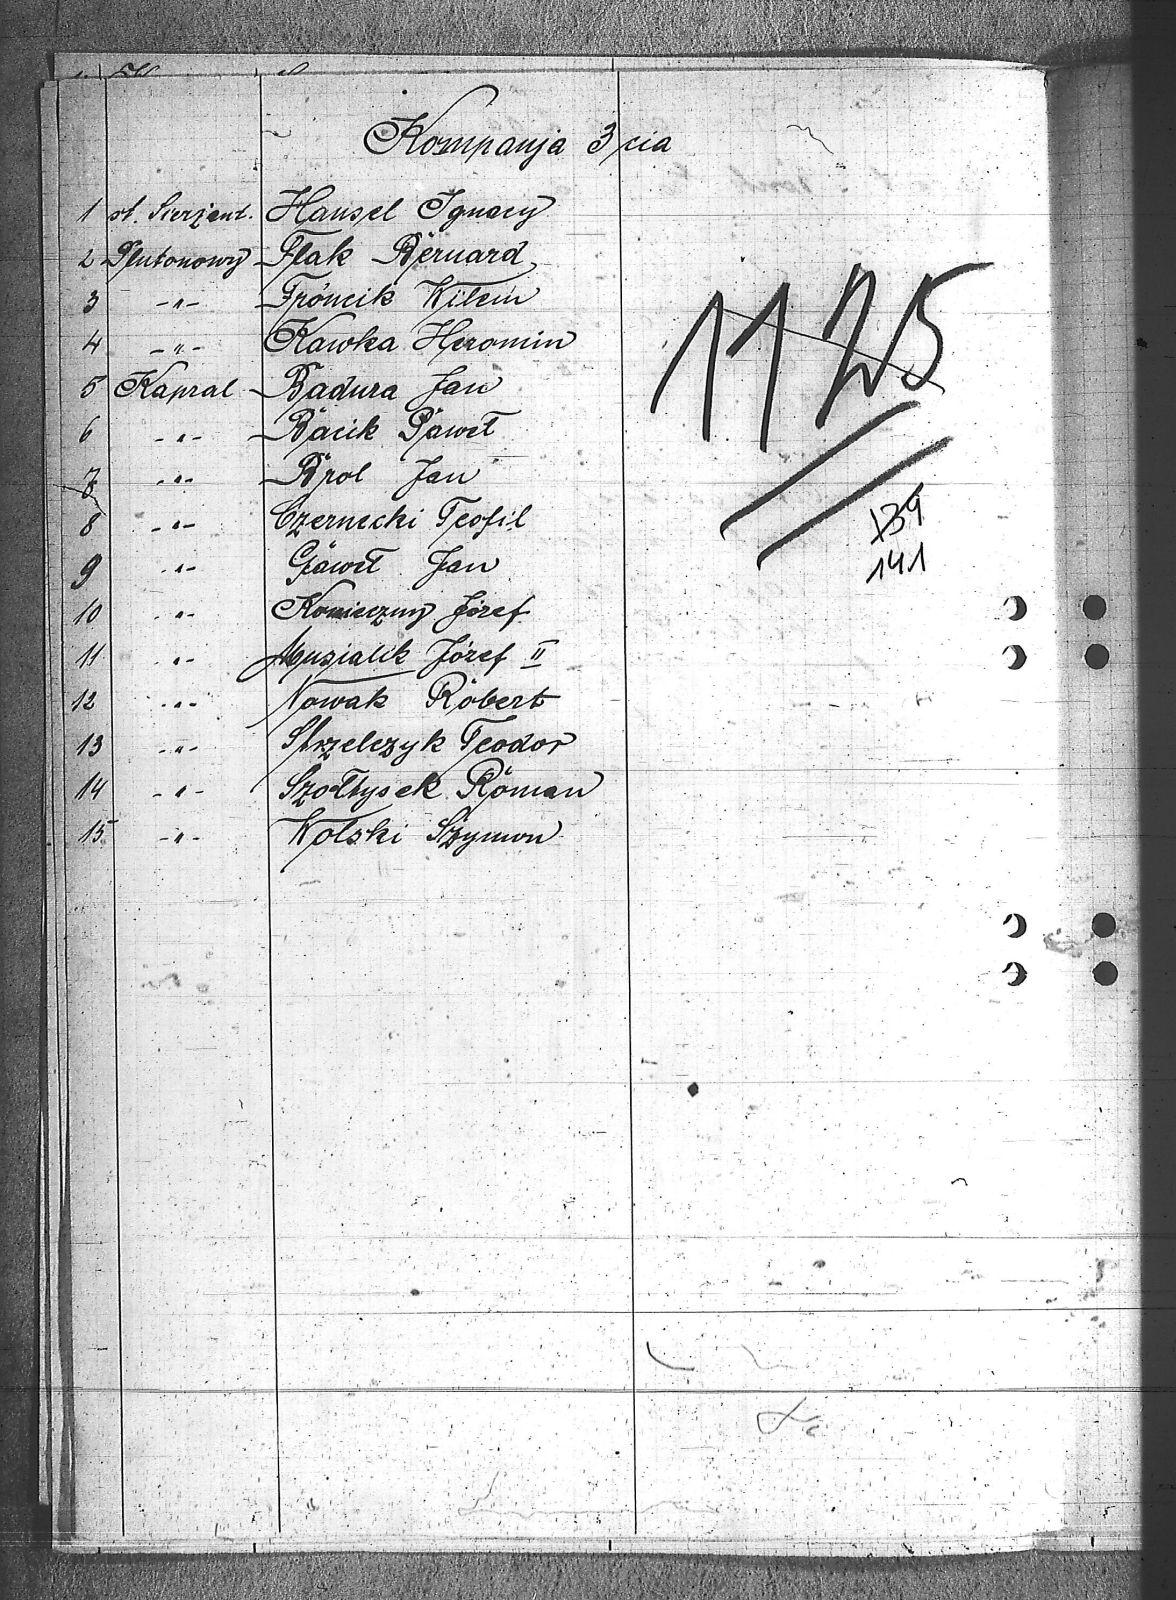 Kompanja 3/cia
1 st. Sierżant. Hansel Ignacy
2 Plutonowy Flak Bernard
3 -"- Froncik Wilem
4 -"- Kawka Heromin
5 Kapral Badura Jan
6 -"- Bacik Paweł
7 -"- Brol Jan
8 -"- Czernecki Teofil
9 -"- Gaweł Jan
10 -"- Konieczny Józef
11 -"- Musialik Józef II
12 -"- Nowak Robert
13 -"- Strzelczyk Teodor
14 -"- Szołtysek Roman
15 -"- Wolski Szymon
1125
139
141